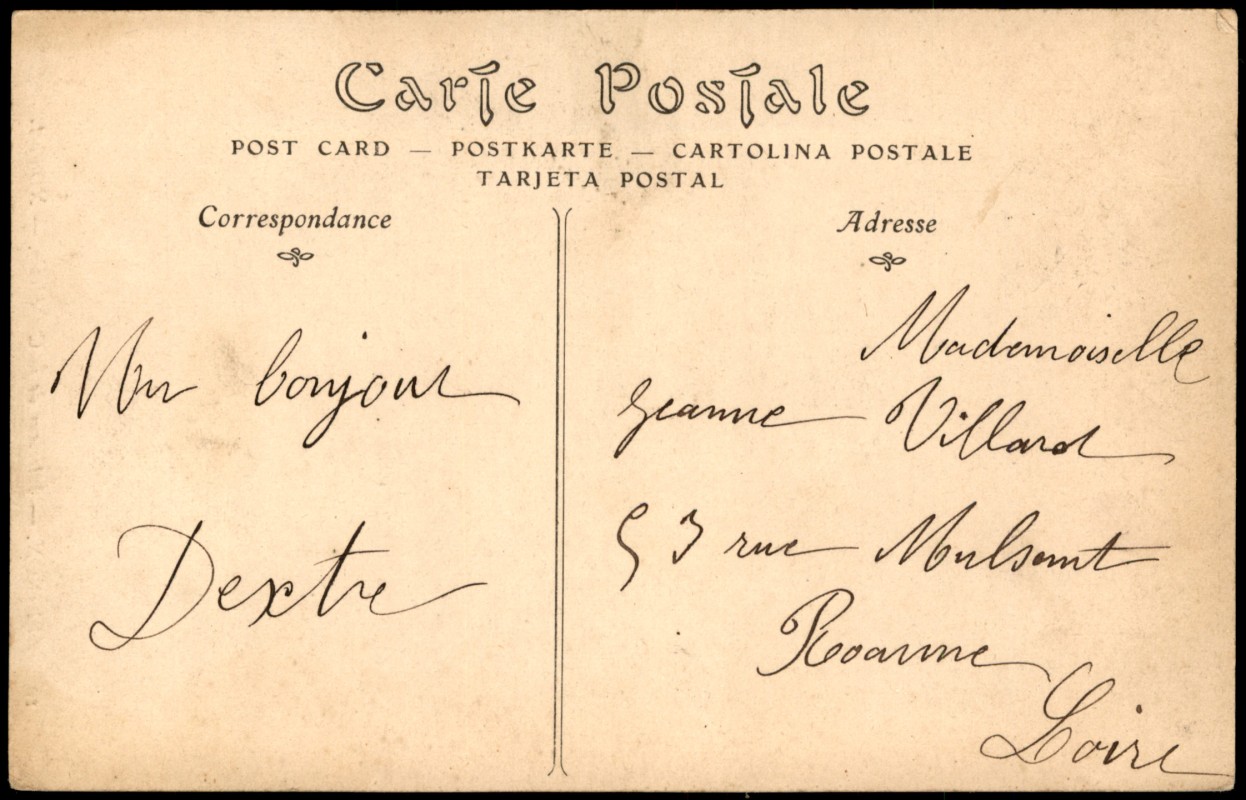 Carte Postale
POST CARD — POSTKARTE — CARTOLINA POSTALE
TARJETA POSTAL
Correspondance
Mon bonjour
Dextre
Adresse
Mademoiselle
Jeanne Villard
53 rue Mulsant
Roanne
Loire